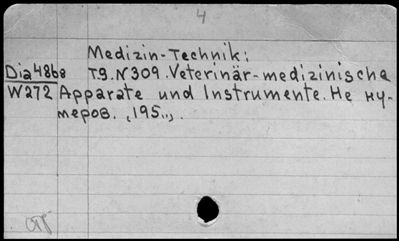 4
Medizin-Technik:
Dia4868 T9.N309.Veterinär-medizinische
W272 Apparate und Instrumente. Не ну-
меров. ,195.,.